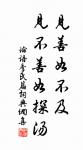 見善如不及
見不善如探湯
論語季氏篇詞典網喜